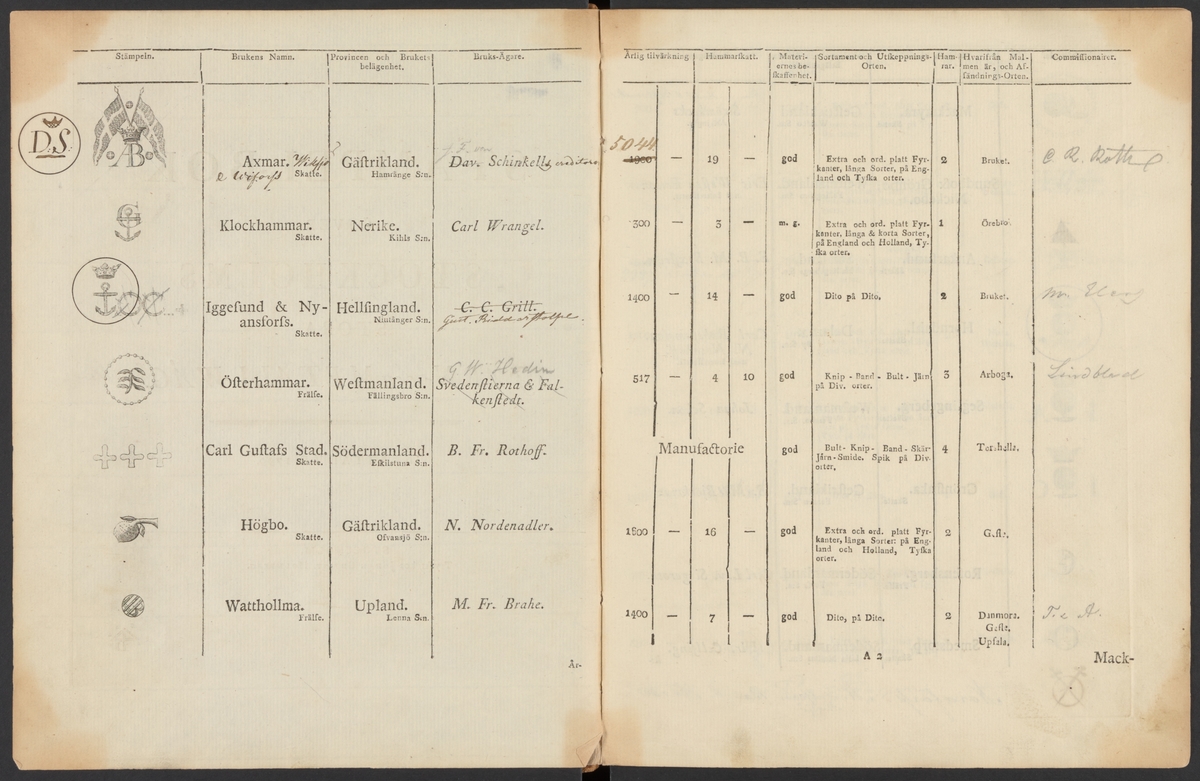 Stämpeln. Brukens Namn. Provincen och Brukets belägenhet. Bruks-Ägare.
D.S. AB Axmar. Skatte. Gästrikland. Hamränge S:n. Dav. Schinkels creditorer
Klockhammar. Skatte. Nerike. Kihls S:n. Carl Wrangel.
Iggeſund & Ny-
ansforſs. Skatte. Hellſingland. Niutånger S:n. C. C. Grill.
Gust. Ridderstolpe.
G W. Hedin
Öſterhammar. Frälſe. Weſtmanland. Fällingsbro S:n. Svedenſtierna & Fal-
kenſtedt.
Carl Guſtafs Stad. Skatte. Södermanland. Eſkilstuna S:n. B. Fr. Rothoff.
Högbo. Skatte. Gäſtrikland. Ofvansjö S:n. N. Nordenadler.
Wattholma. Frälſe. Upland. Lenna S:n. M. Fr. Brahe.
År-
Årlig tilvärkning Hammarſkatt. Materi-
ernes be-
ſkaffenhet. Sortament och Utſkeppnings-
Orten. Ham-
rar. Hvarifrån Mal-
men är, och Af-
ſändnings-Orten. Commiſſionairer.
5044
1900 — 19 — god Extra och ord. platt Fyr-
kanter, långa Sorter, på Eng-
land och Tyſka orter. 2 Bruket. C. R. Roth
300 — 3 — m. g. Extra och ord. platt Fyr-
kanter, långa & korta Sorter,
på England och Holland, Ty-
ſka orter. 1 Örebro.
1400 — 14 — god Dito på Dito. 2 Bruket.
517 — 4 10 god Knip - Band - Bult - Järn
på Div. orter. 3 Arboga. Lindblad
Manufactorie god Bult- Knip - Band - Skär-
Järn-Smide. Spik på Div.
orter. 4 Torshella.
1600 — 16 — god Extra och ord. platt Fyr-
kanter, långa Sorter: på Eng-
land och Holland, Tyſka
orter. 2 Gefle.
1400 — 7 — god Dito, på Dito. 2 Danmora.
Gefle.
Upſala. T. & A.
A 2 Mack-